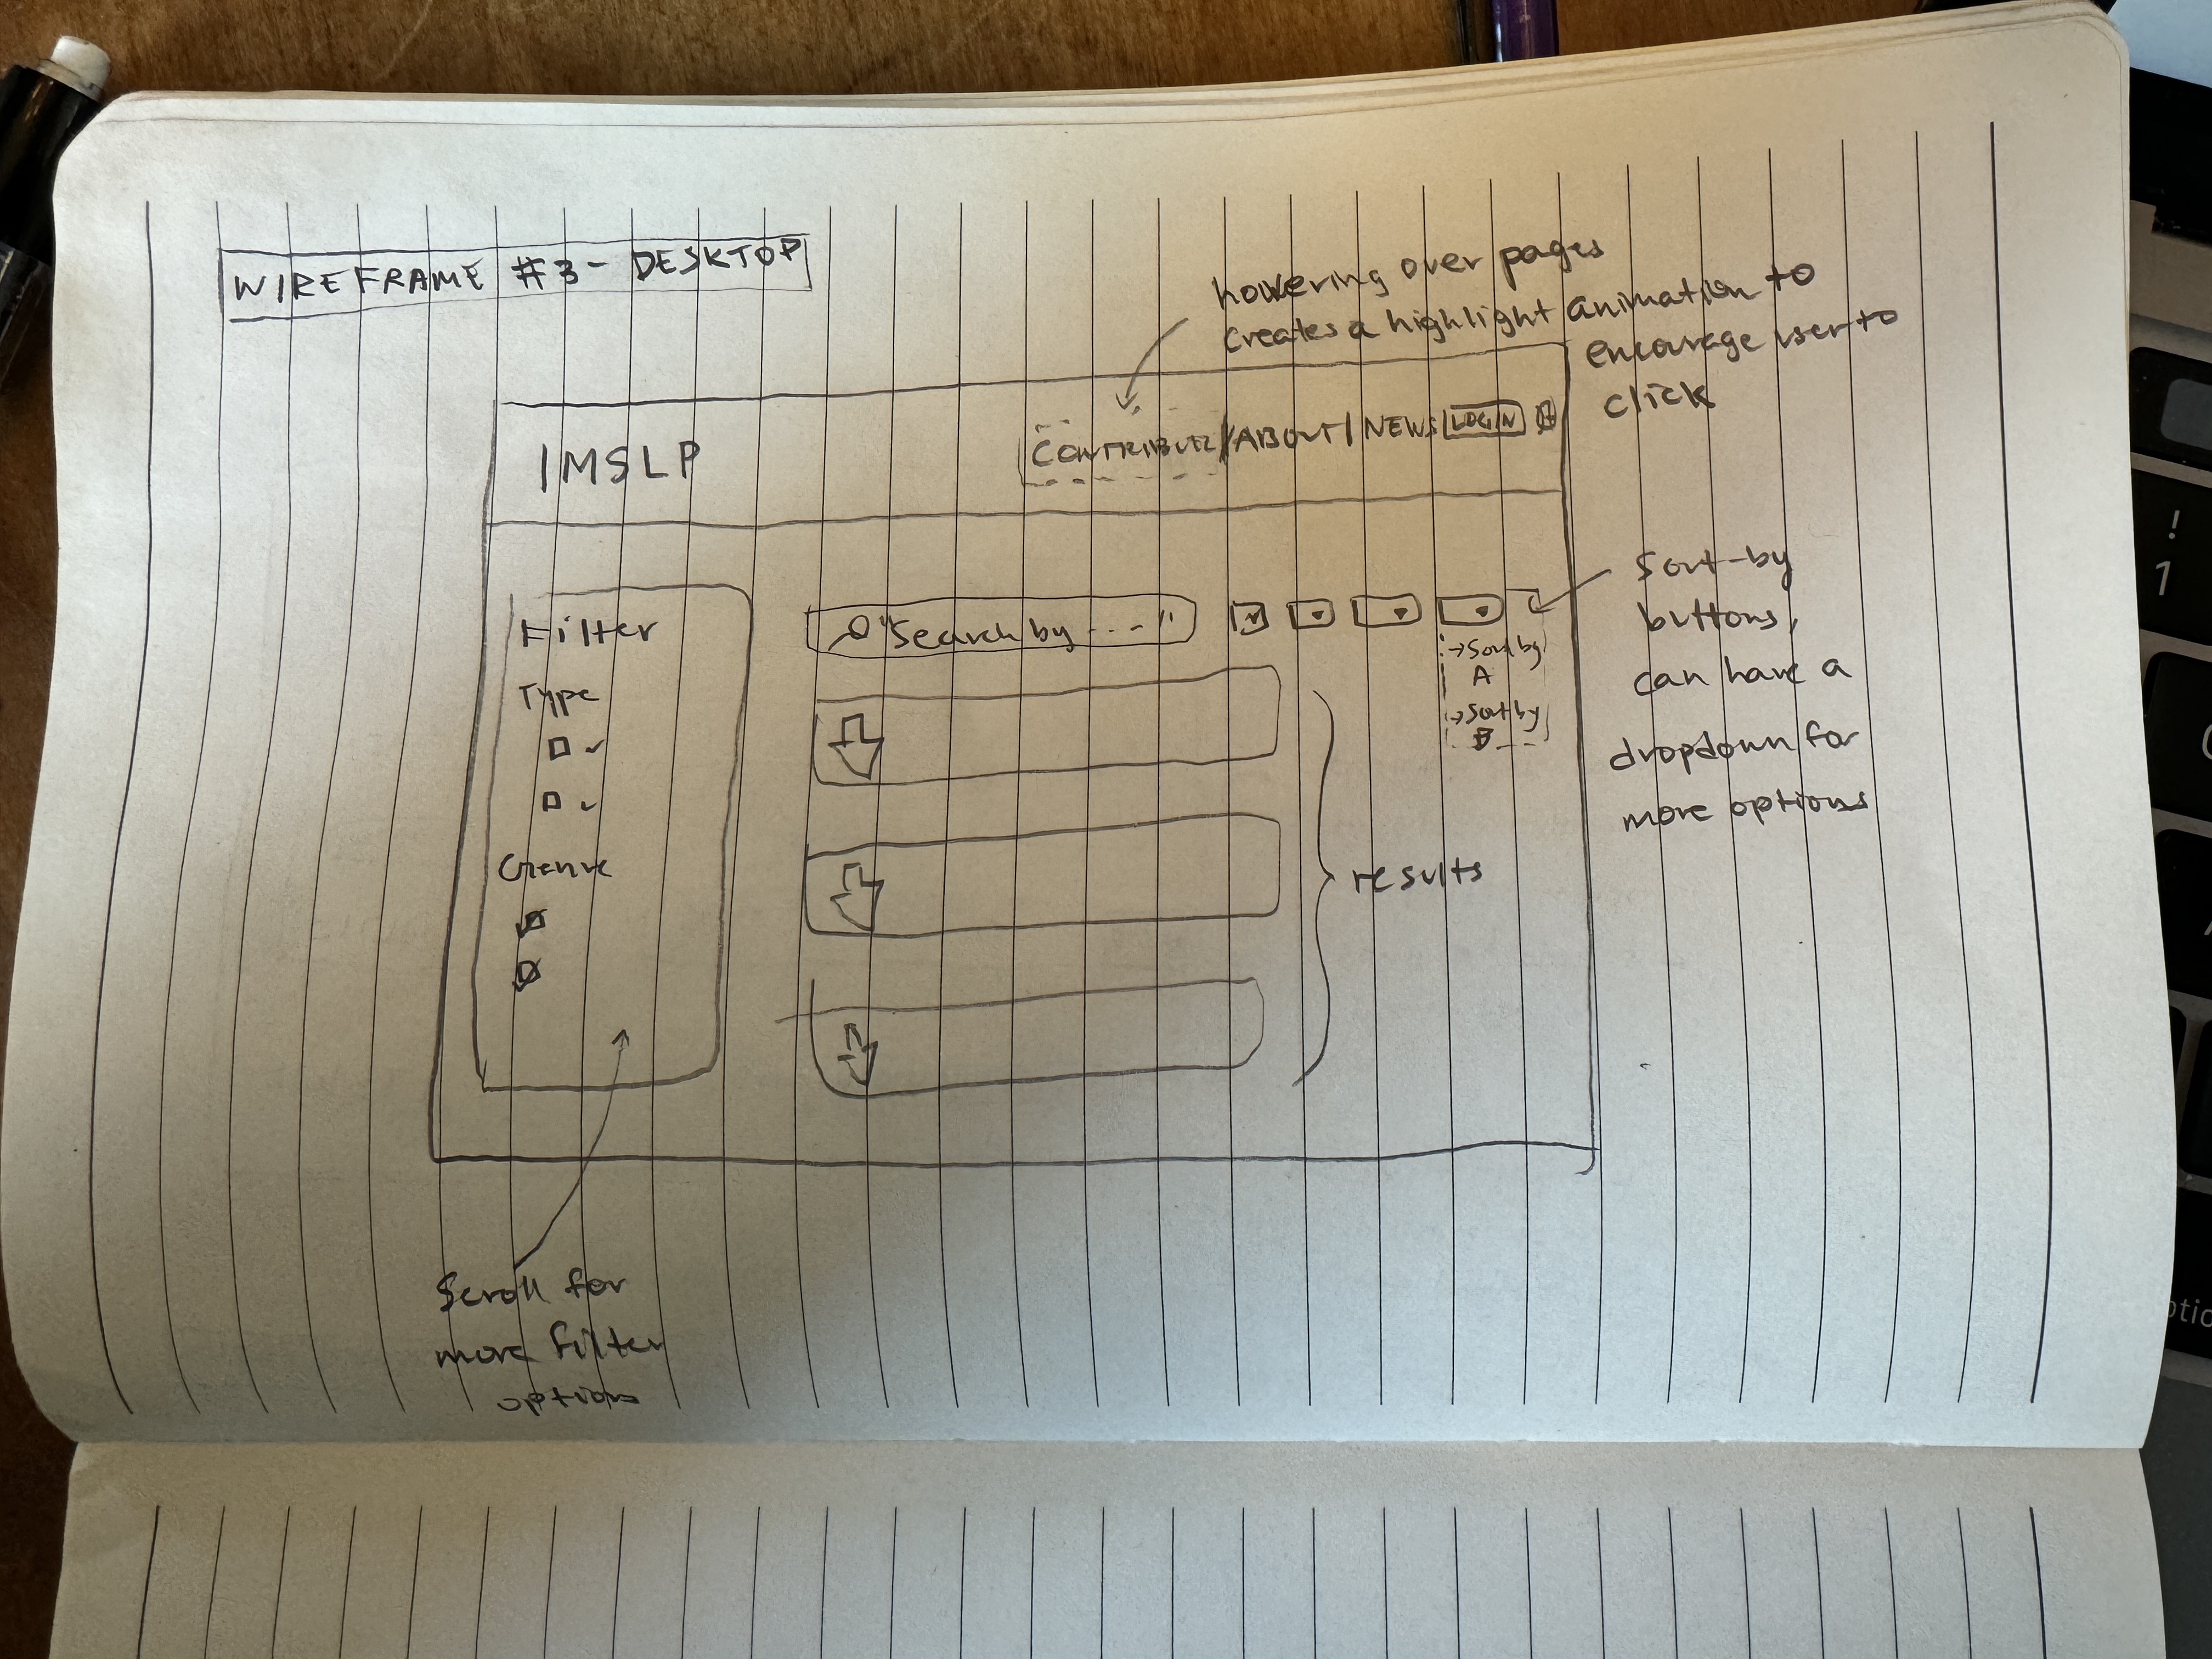 WIREFRAME #3 - DESKTOP
hovering over pages
creates a highlight animation to
encourage user to
click
IMSLP
CONTRIBUTE/ABOUT/NEWS LOGIN
Filter
Type
Genre
"Search by ..."
→Sort by
A
→Sort by
B
Sort-by
buttons,
can have a
dropdown for
more options
results
Scroll for
more filter
options
!
1